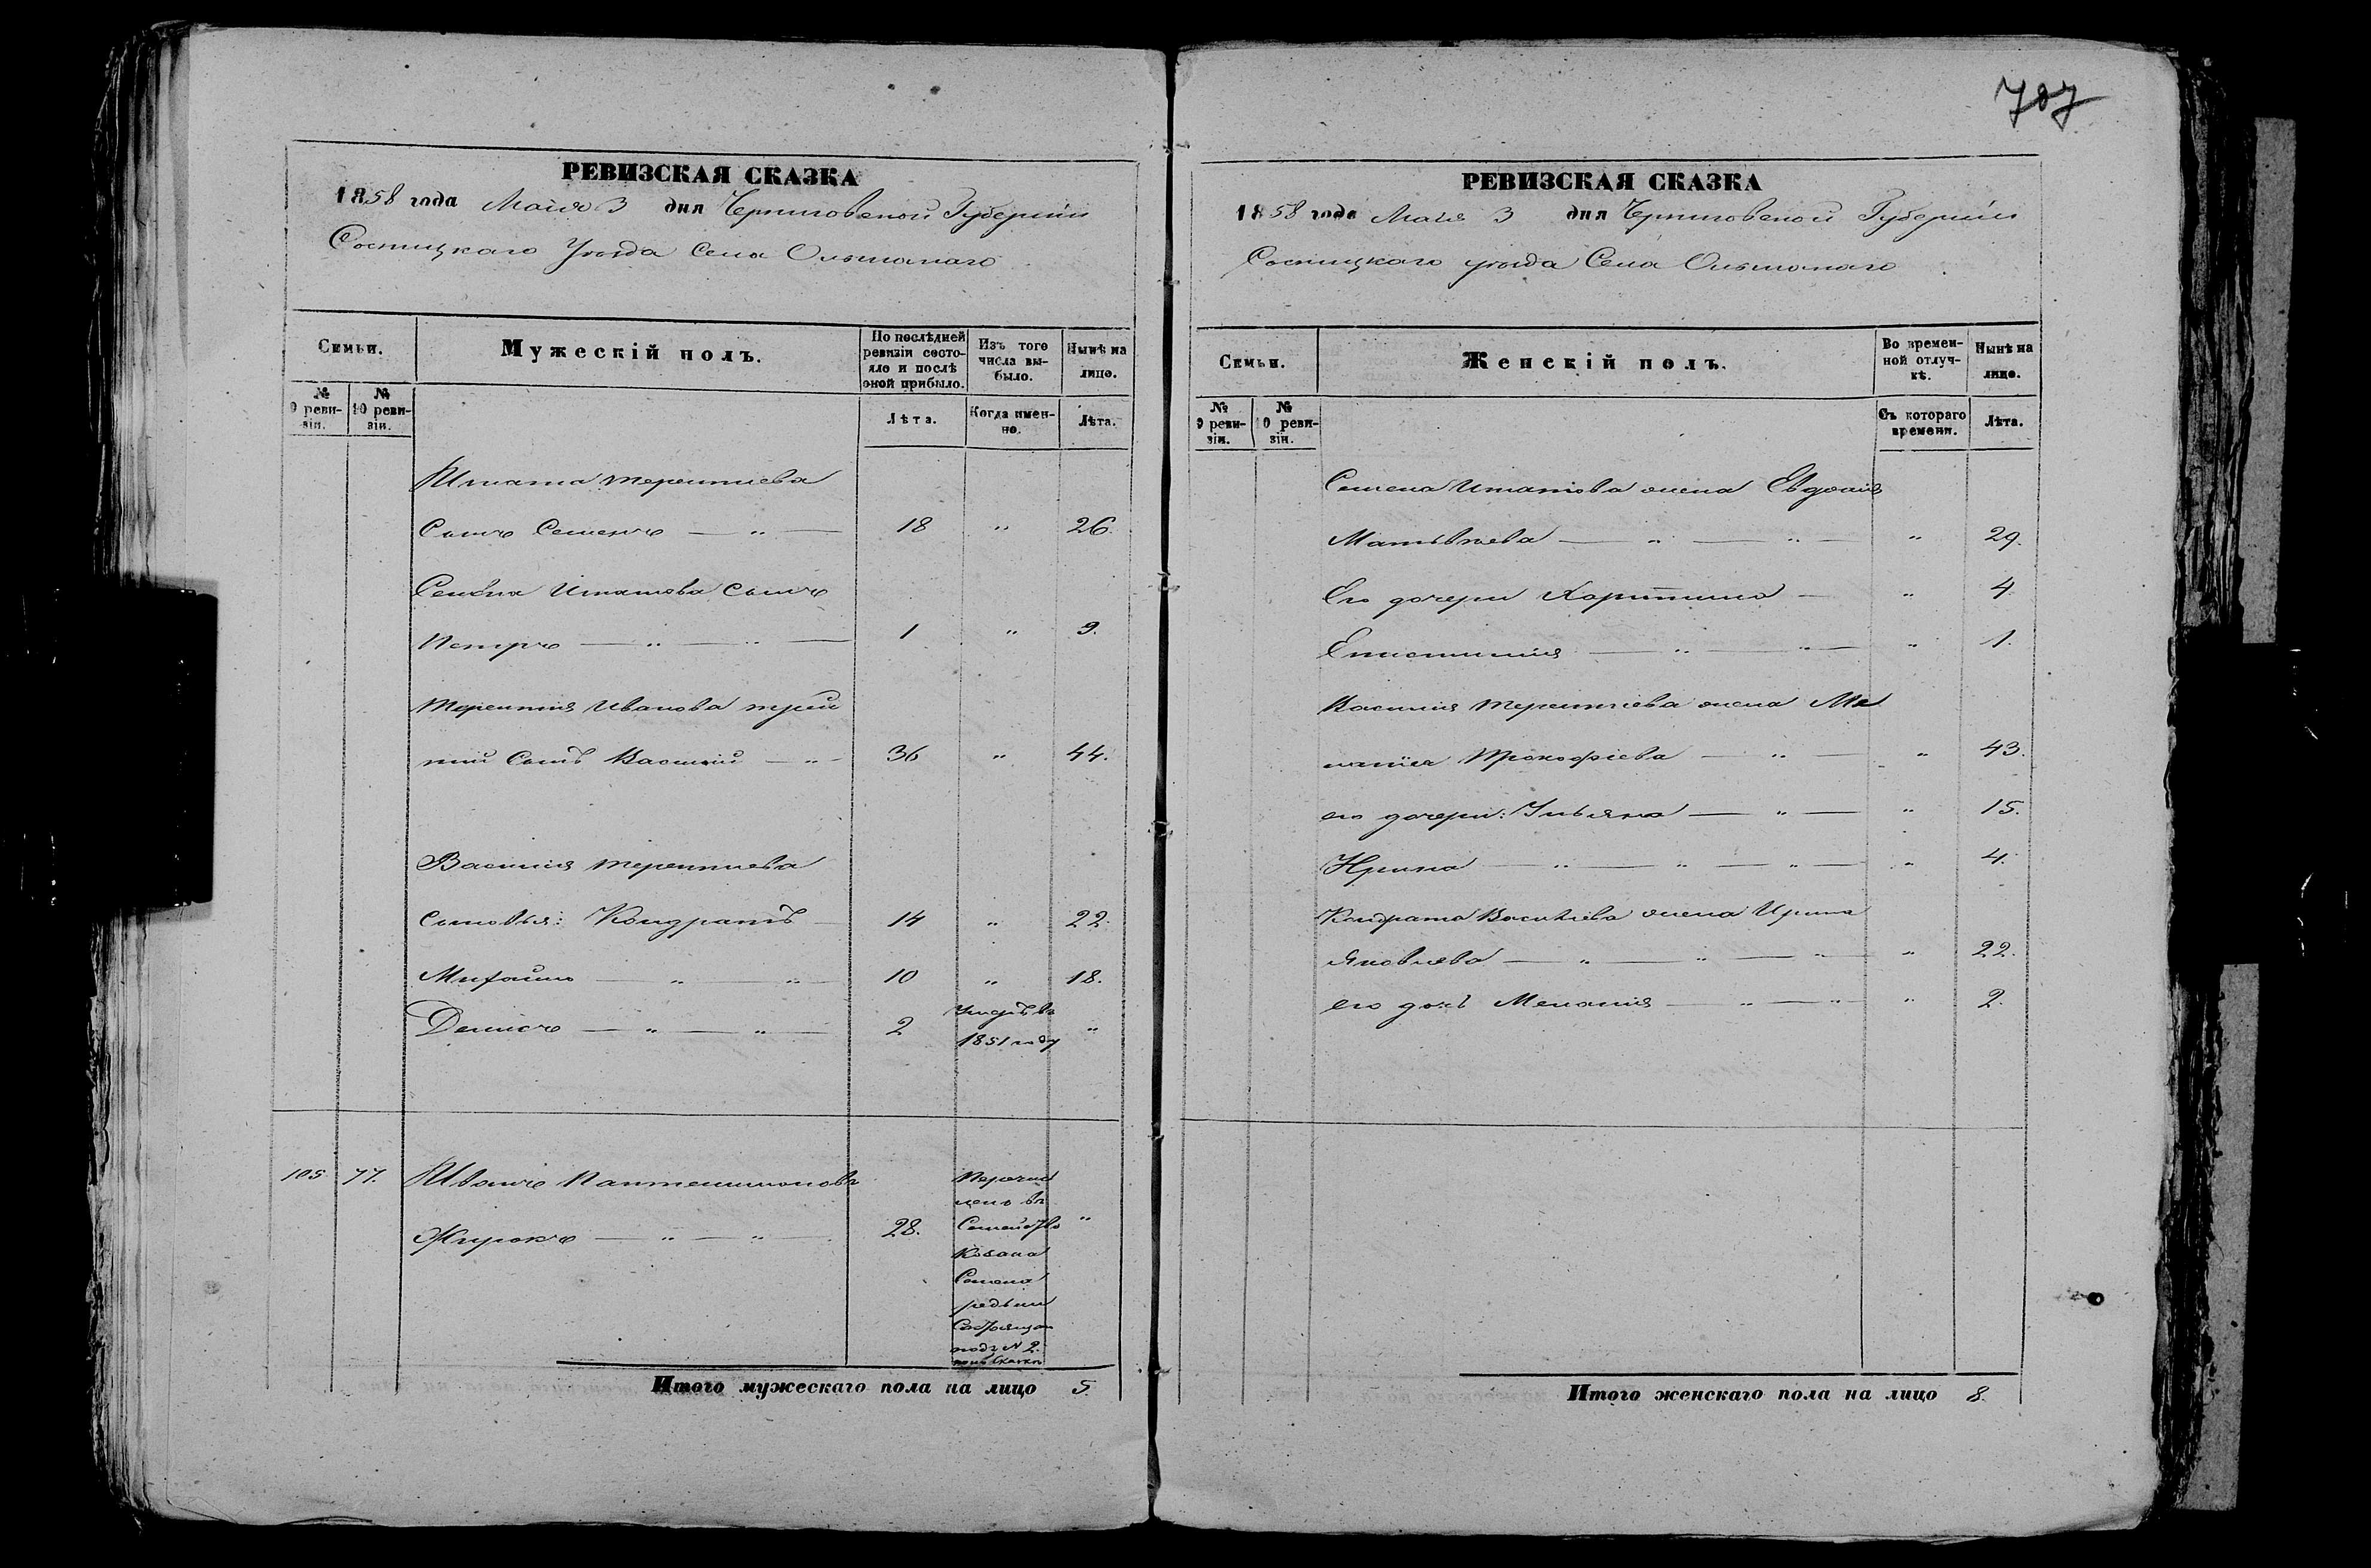 707
РЕВИЗСКАЯ СКАЗКА
1858 года Маія 3 дня Черниговской Губерніи
Сосницкаго Уѣзда Села Ольшанаго
Семьи.
Мужескій полъ.
По послѣдней ревизіи состояло и послѣ оной прибыло.
Изъ того числа выбыло.
Нынѣ на лицо.
№ 9 ревизіи.
№ 10 ревизіи.
Лѣта.
Когда именно.
Лѣта.
Игната Терентиева
Сынъ Семенъ — " — 18 " 26.
Семена Игнатова сынъ
Петръ — " — " — 1 " 9.
Терентия Иванова
тий Сынъ Василий — " — 36 " 44.
Василия Терентиева
Сыновья: Кондратъ — 14 " 22.
Михайло — " — " — 10 " 18.
Денисъ — " — " — 2 "
1851 году
105. 77. Иванъ Пантелимоновъ
Жирокъ — " — " — 28. "
Перечис
ленъ въ
Семейство
Козака
Семена
подъ № 2.
Итого мужескаго пола на лицо 5.
РЕВИЗСКАЯ СКАЗКА
1858 года Маія 3 дня Черниговской Губерніи
Сосницкаго уѣзда Села Ольшанаго
Семьи.
Женскій полъ.
Во временной отлучкѣ.
Нынѣ на лицо.
№ 9 ревизіи.
№ 10 ревизіи.
Съ котораго времени.
Лѣта.
Семена Игнатова жена Евдокия
Матвѣева — " — " — " 29.
Его дочери Харитина — " 4.
Епистимия — " — " — " 1.
Василия Терентиева жена Ме
лания Прокофіева — " — " 43.
его дочери: Ульяна — " — " 15.
Ирина — " — " — " — " 4.
Кондрата Василіева жена Ирина
Яковлева — " — " — " — " 22.
его дочь Мелания — " — " — " 2.
Итого женскаго пола на лицо 8.